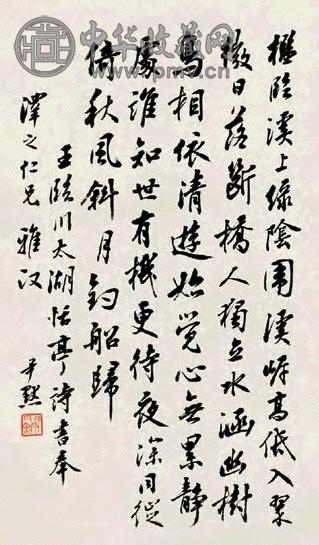 中华收藏网
檻臨溪上綠陰圍溪岸高低入翠
微日落斷橋人獨立水涵幽樹
鳥相依清遊始覺心無累靜
處誰知世有機更待夜深同徙
倚秋風斜月釣船歸
王臨川太湖恬亭詩書奉
澤之仁兄 雅
尹默